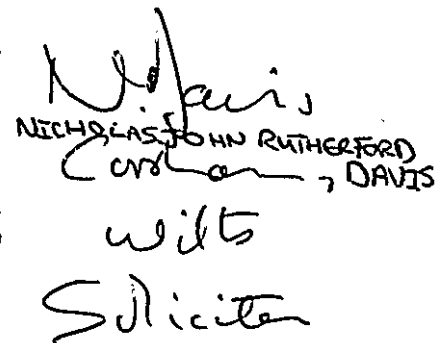 N Davis
NICHOLAS JOHN RUTHERFORD
Corsham, DAVIS
Wilts
Solicitor